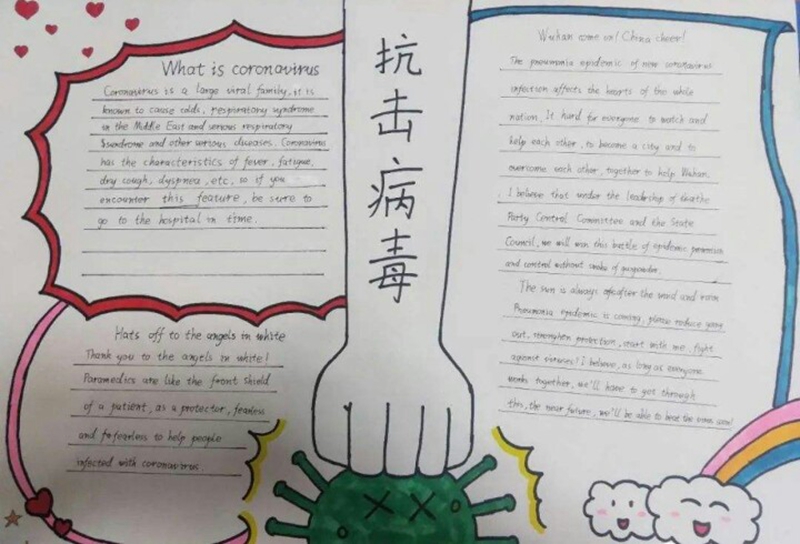 What is coronavirus
Coronavirus is a large viral family, it is
known to cause colds, respiratory syndrome
in the Middle East and serious respiratory
Ssyndrome and other serious diseases. Coronavirus
has the characteristics of fever, fatigue,
dry cough, dyspnea, etc, so if you
encounter this feature, be sure to
go to the hospital in time.
Hats off to the angels in white
Thank you to the angels in white!
Paramedics are like the front shield
of a patient, as a protector, fearless
and fofearless to help people
infected with coronavirus.
抗击病毒
Wuhan come on! China cheer!
The pneumonia epidemic of new coronavirus
infection affects the hearts of the whole
nation. It hard for everyone to watch and
help each other, to become a city and to
overcome each other, together to help Wuhan.
I believe that under the leadership of
Party Central Committee and the State
Council, we will win this battle of epidemic prevention
and control without smoke of gunpowder.
The sun is always after the wind and rain
Pneumonia epidemic is coming, please reduce going
out, strengthen protection, start with me, fight
against viruses! I believe, as long as everyone
works together, we'll have to get through
this, the near future, we'll be able to beat the virus soon!